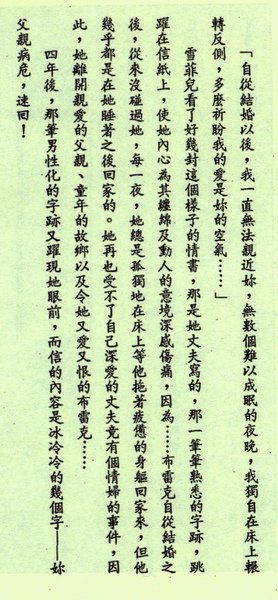 「自從結婚以後，我一直無法親近妳，無數個難以成眠的夜晚，我獨自在床上輾
轉反側，多麼祈盼我的愛是妳的空氣……」
雪菲兒看了好幾封這個樣子的情書，那是她丈夫寫的，那一筆筆熟悉的字跡，跳
躍在信紙上，使她內心為其纏綿及動人的意境深感傷痛，因為……布雷克自從結婚之
後，從來沒碰過她，每一夜，她總是孤獨地在床上等他拖著疲憊的身軀回家來，但他
幾乎都是在她睡著之後回家的。她再也受不了自己深愛的丈夫竟有個情婦的事件，因
此，她離開親愛的父親、童年的故鄉以及令她又愛又恨的布雷克……
四年後，那筆男性化的字跡又躍現她眼前，而信的內容是冰冷冷的幾個字——妳
父親病危，速回！